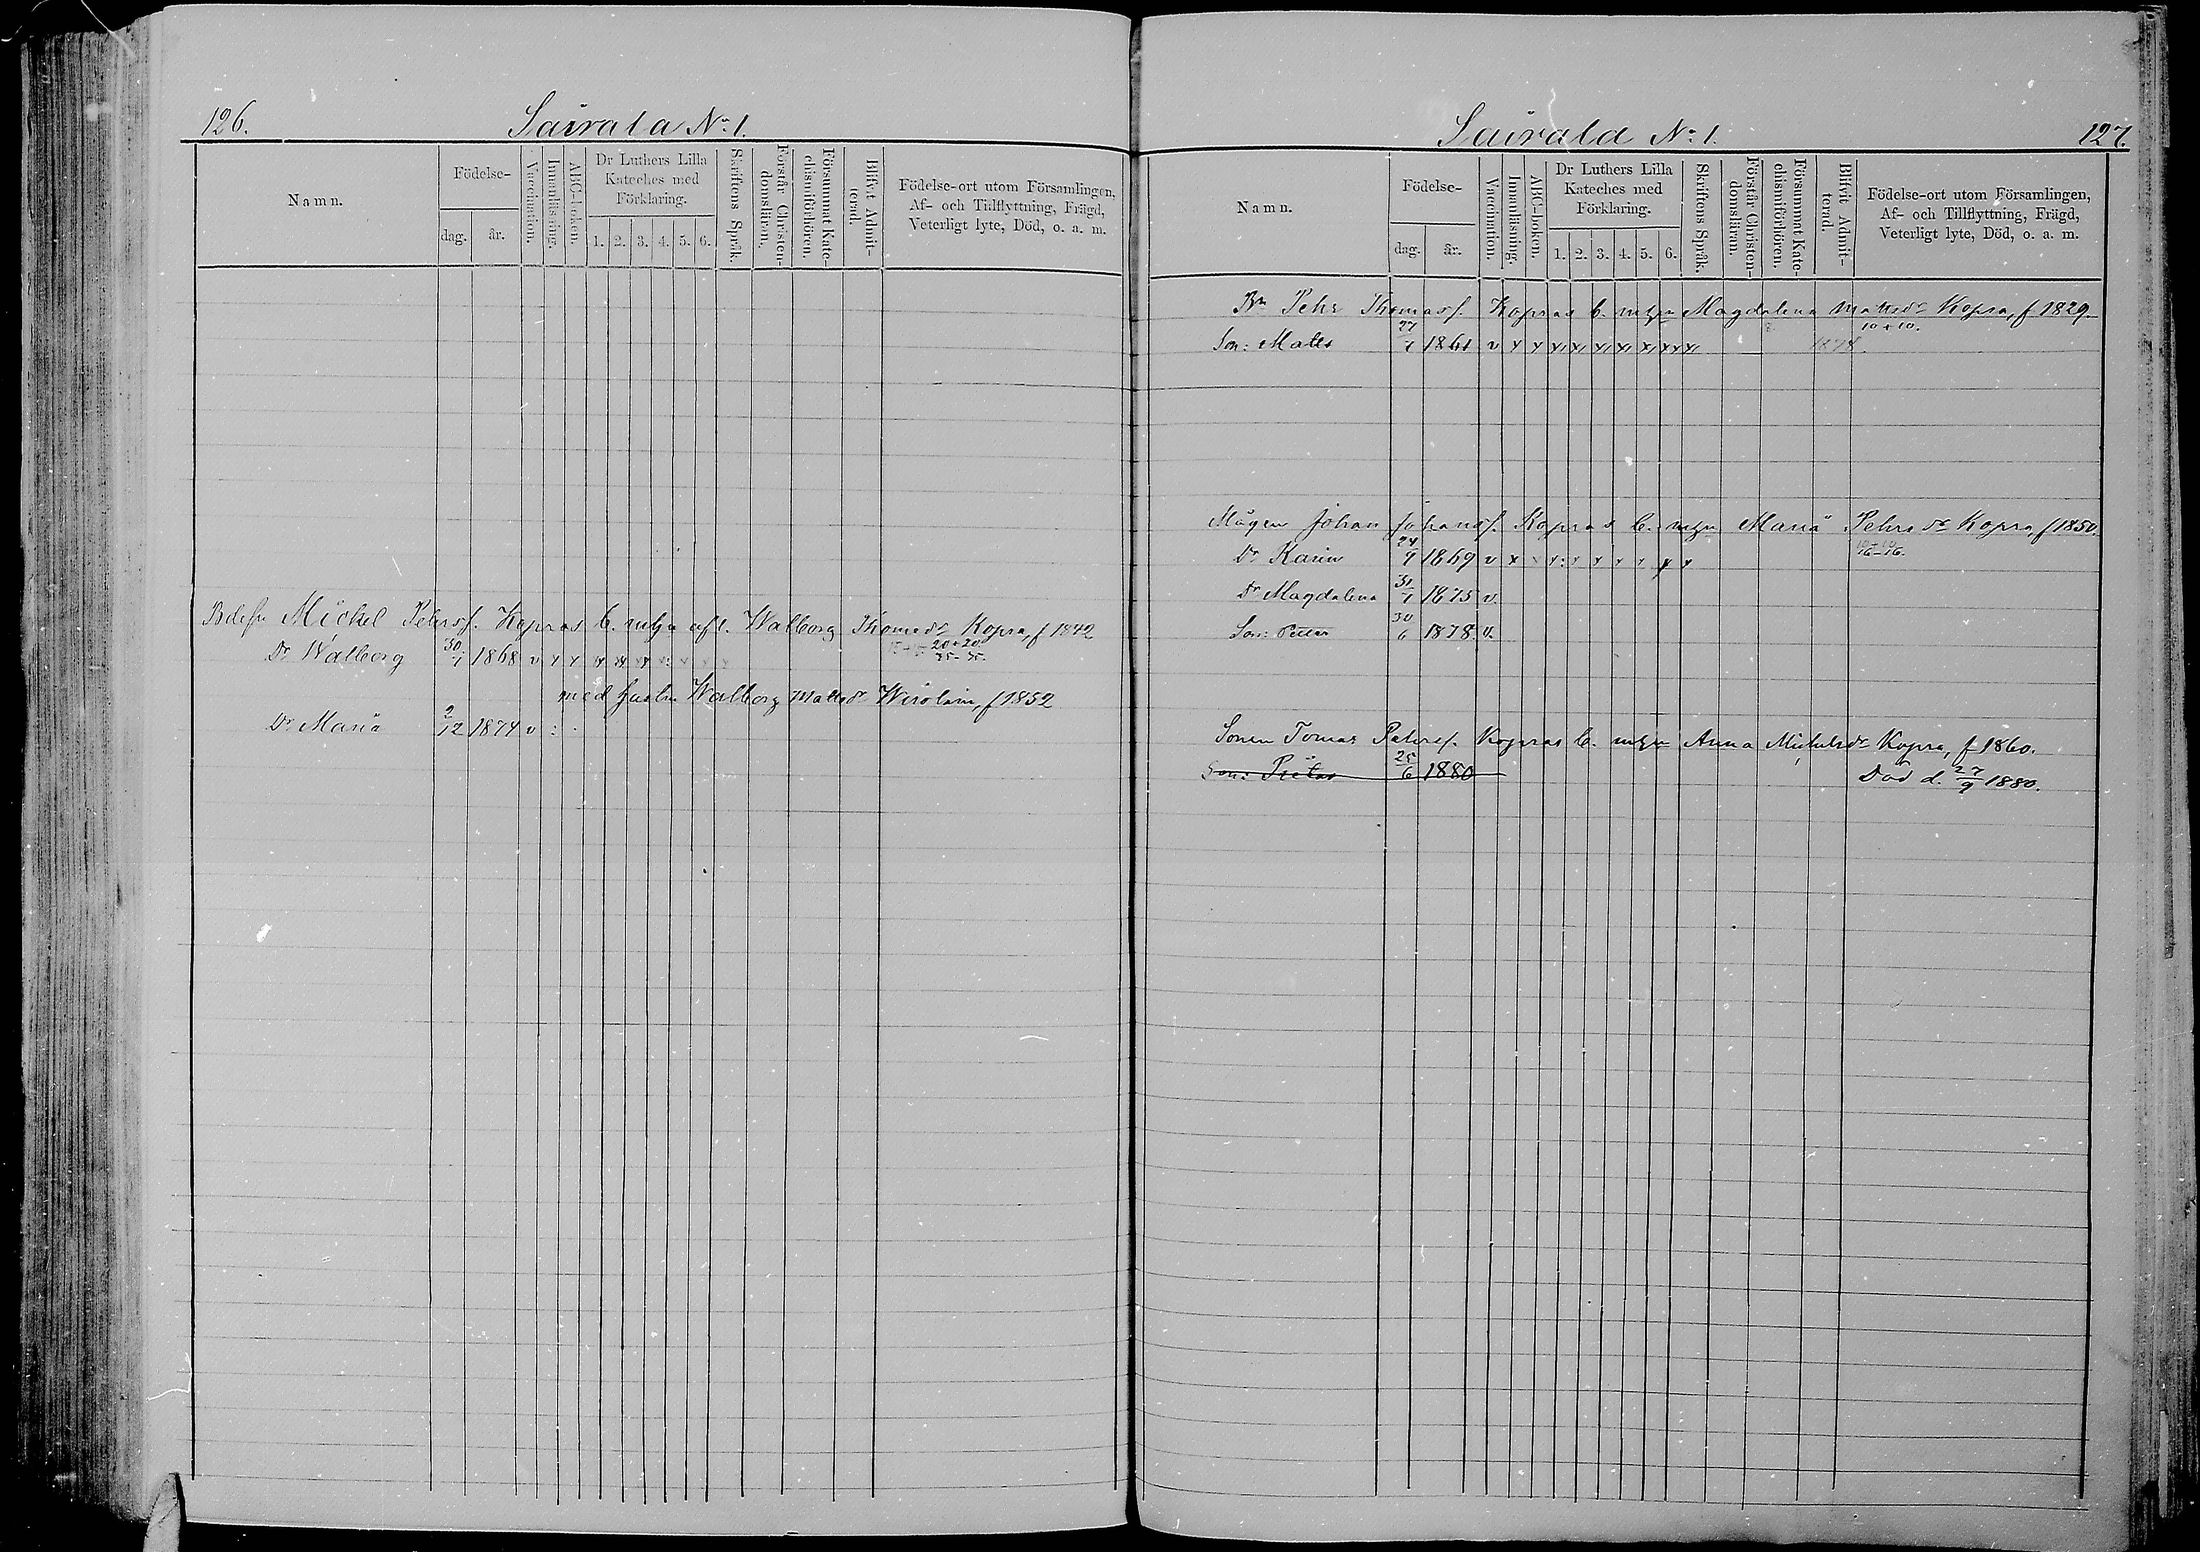 126.
Säirälä No 1.
Namn.
Födelse-
dag.
år.
Vaccination.
Innanläsning.
ABC-boken.
Dr Luthers Lilla
Kateches med
Förklaring.
1. 2. 3. 4. 5. 6.
Skriftens Språk.
Förstår Christen-
domsläran.
Försummat Kate-
chismiförhören.
Blifvit Admit-
terad.
Födelse-ort utom Församlingen,
Af- och Tillflyttning, Frägd,
Veterligt lyte, Död, o. a. m.
Michel Pehrsf. Kopras b. m. hustru Walborg Thomasdr Kopra, f 1842
Dr Walborg 30/1 1868 v x x
20+20
med hustru Walborg Mattsdr Wirolain, f 1852
Dr Maria 2/12 1874 v
Säirälä No 1.
127.
Namn.
Födelse-
dag.
år.
Vaccination.
Innanläsning.
ABC-boken.
Dr Luthers Lilla
Kateches med
Förklaring.
1. 2. 3. 4. 5. 6.
Skriftens Språk.
Förstår Christen-
domsläran.
Försummat Kate-
chismiförhören.
Blifvit Admit-
terad.
Födelse-ort utom Församlingen,
Af- och Tillflyttning, Frägd,
Veterligt lyte, Död, o. a. m.
Bn Pehr Thomasf. Kopras b. Magdalena Mattsdr Kopra, f 1829
10+10.
Son: Matts 1861 v x x 1878.
Mågen Johan Johansf. Kopras b. Maria Pehrsdr Kopra, f 1850.
Dr Karin 24/9 1869 v x
16-16.
Dr Magdalena 31/1 1875 v.
Son: Petter 30/6 1878. v.
Sonen Tomas Petersf. Kopras b. Anna Michelsdr Kopra, f 1860.
Son: Pietar 25/6 1880 Död d. 27/9 1880.